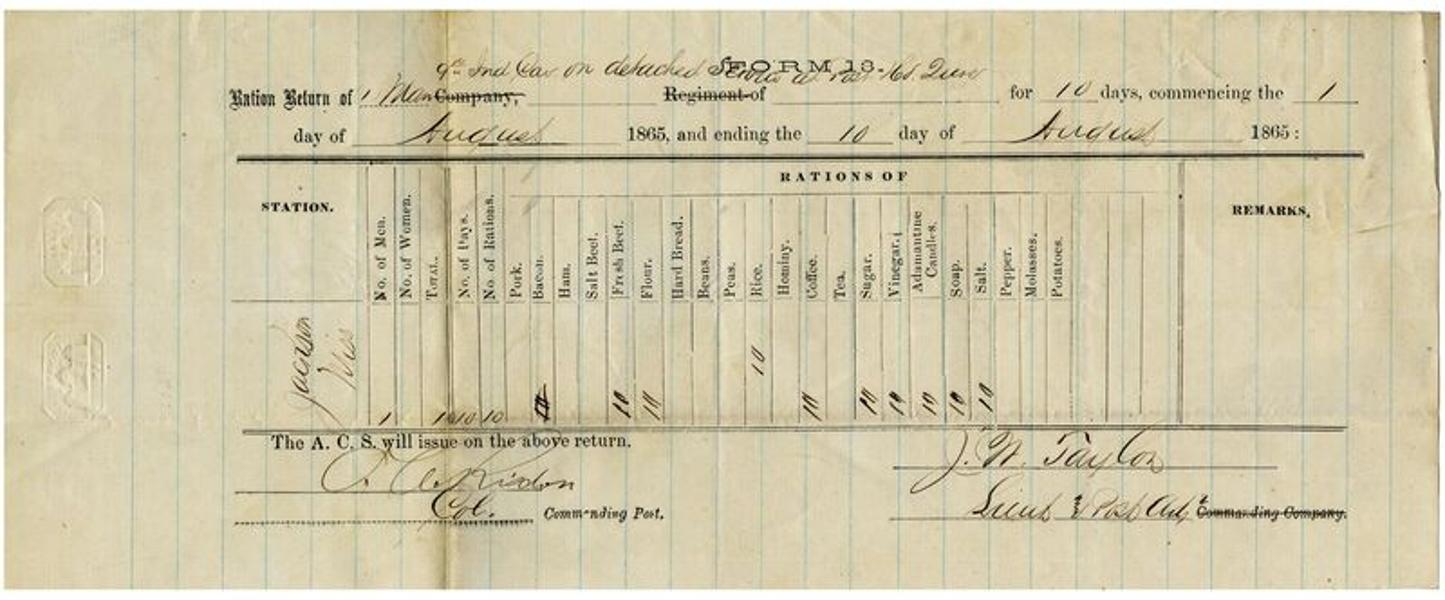 FORM 13.
9th Ind Cav on detached Service at Post Hd. Qurs
Ration Return of 1 Man Company, Regiment of for 10 days, commencing the 1
day of August 1865, and ending the 10 day of August 1865:
RATIONS OF
STATION.
No. of Men.
No. of Women.
TOTAL.
No. of Days.
No. of Rations.
Pork.
Bacon.
Ham.
Salt Beef.
Fresh Beef.
Flour.
Hard Bread.
Beans.
Peas.
Rice.
Hominy.
Coffee.
Tea.
Sugar.
Vinegar.
Adamantine
Candles.
Soap.
Salt.
Pepper.
Molasses.
Potatoes.
REMARKS,
Jackson
Miss
1 1 10 10 10 10 10 10 10 10 10 10 10 10
The A. C. S. will issue on the above return.
J. W. Taylor
Col. Commanding Post.
Lieut & Post Adjt Commanding Company.